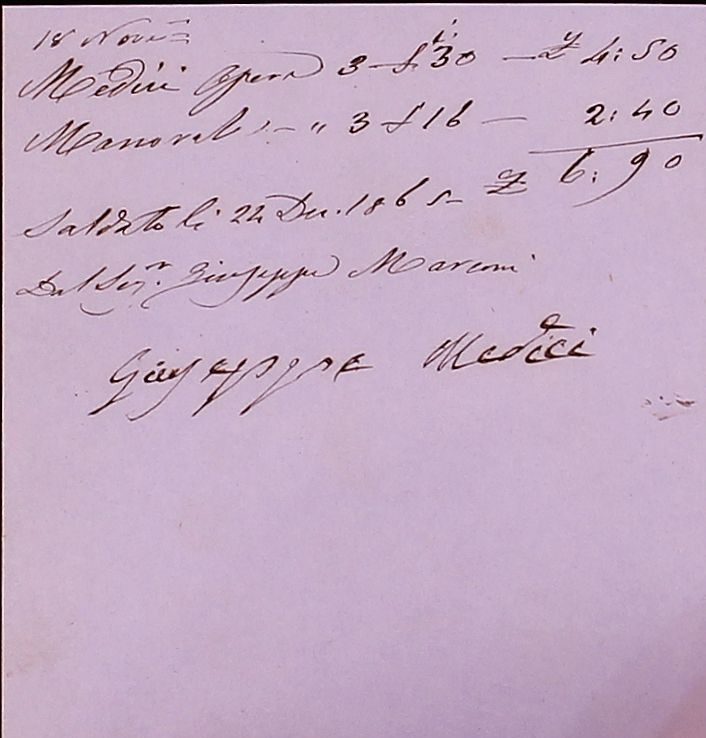 18 Nov.e
Medici Opere 3 £ 30 — £ 4:50
Manoval: — " 3 £ 16 — 2:40
Saldato li 22 Dec. 1865 — £ 6:90
Dal Sig.r Giuseppe Marconi
Giuseppe Medici